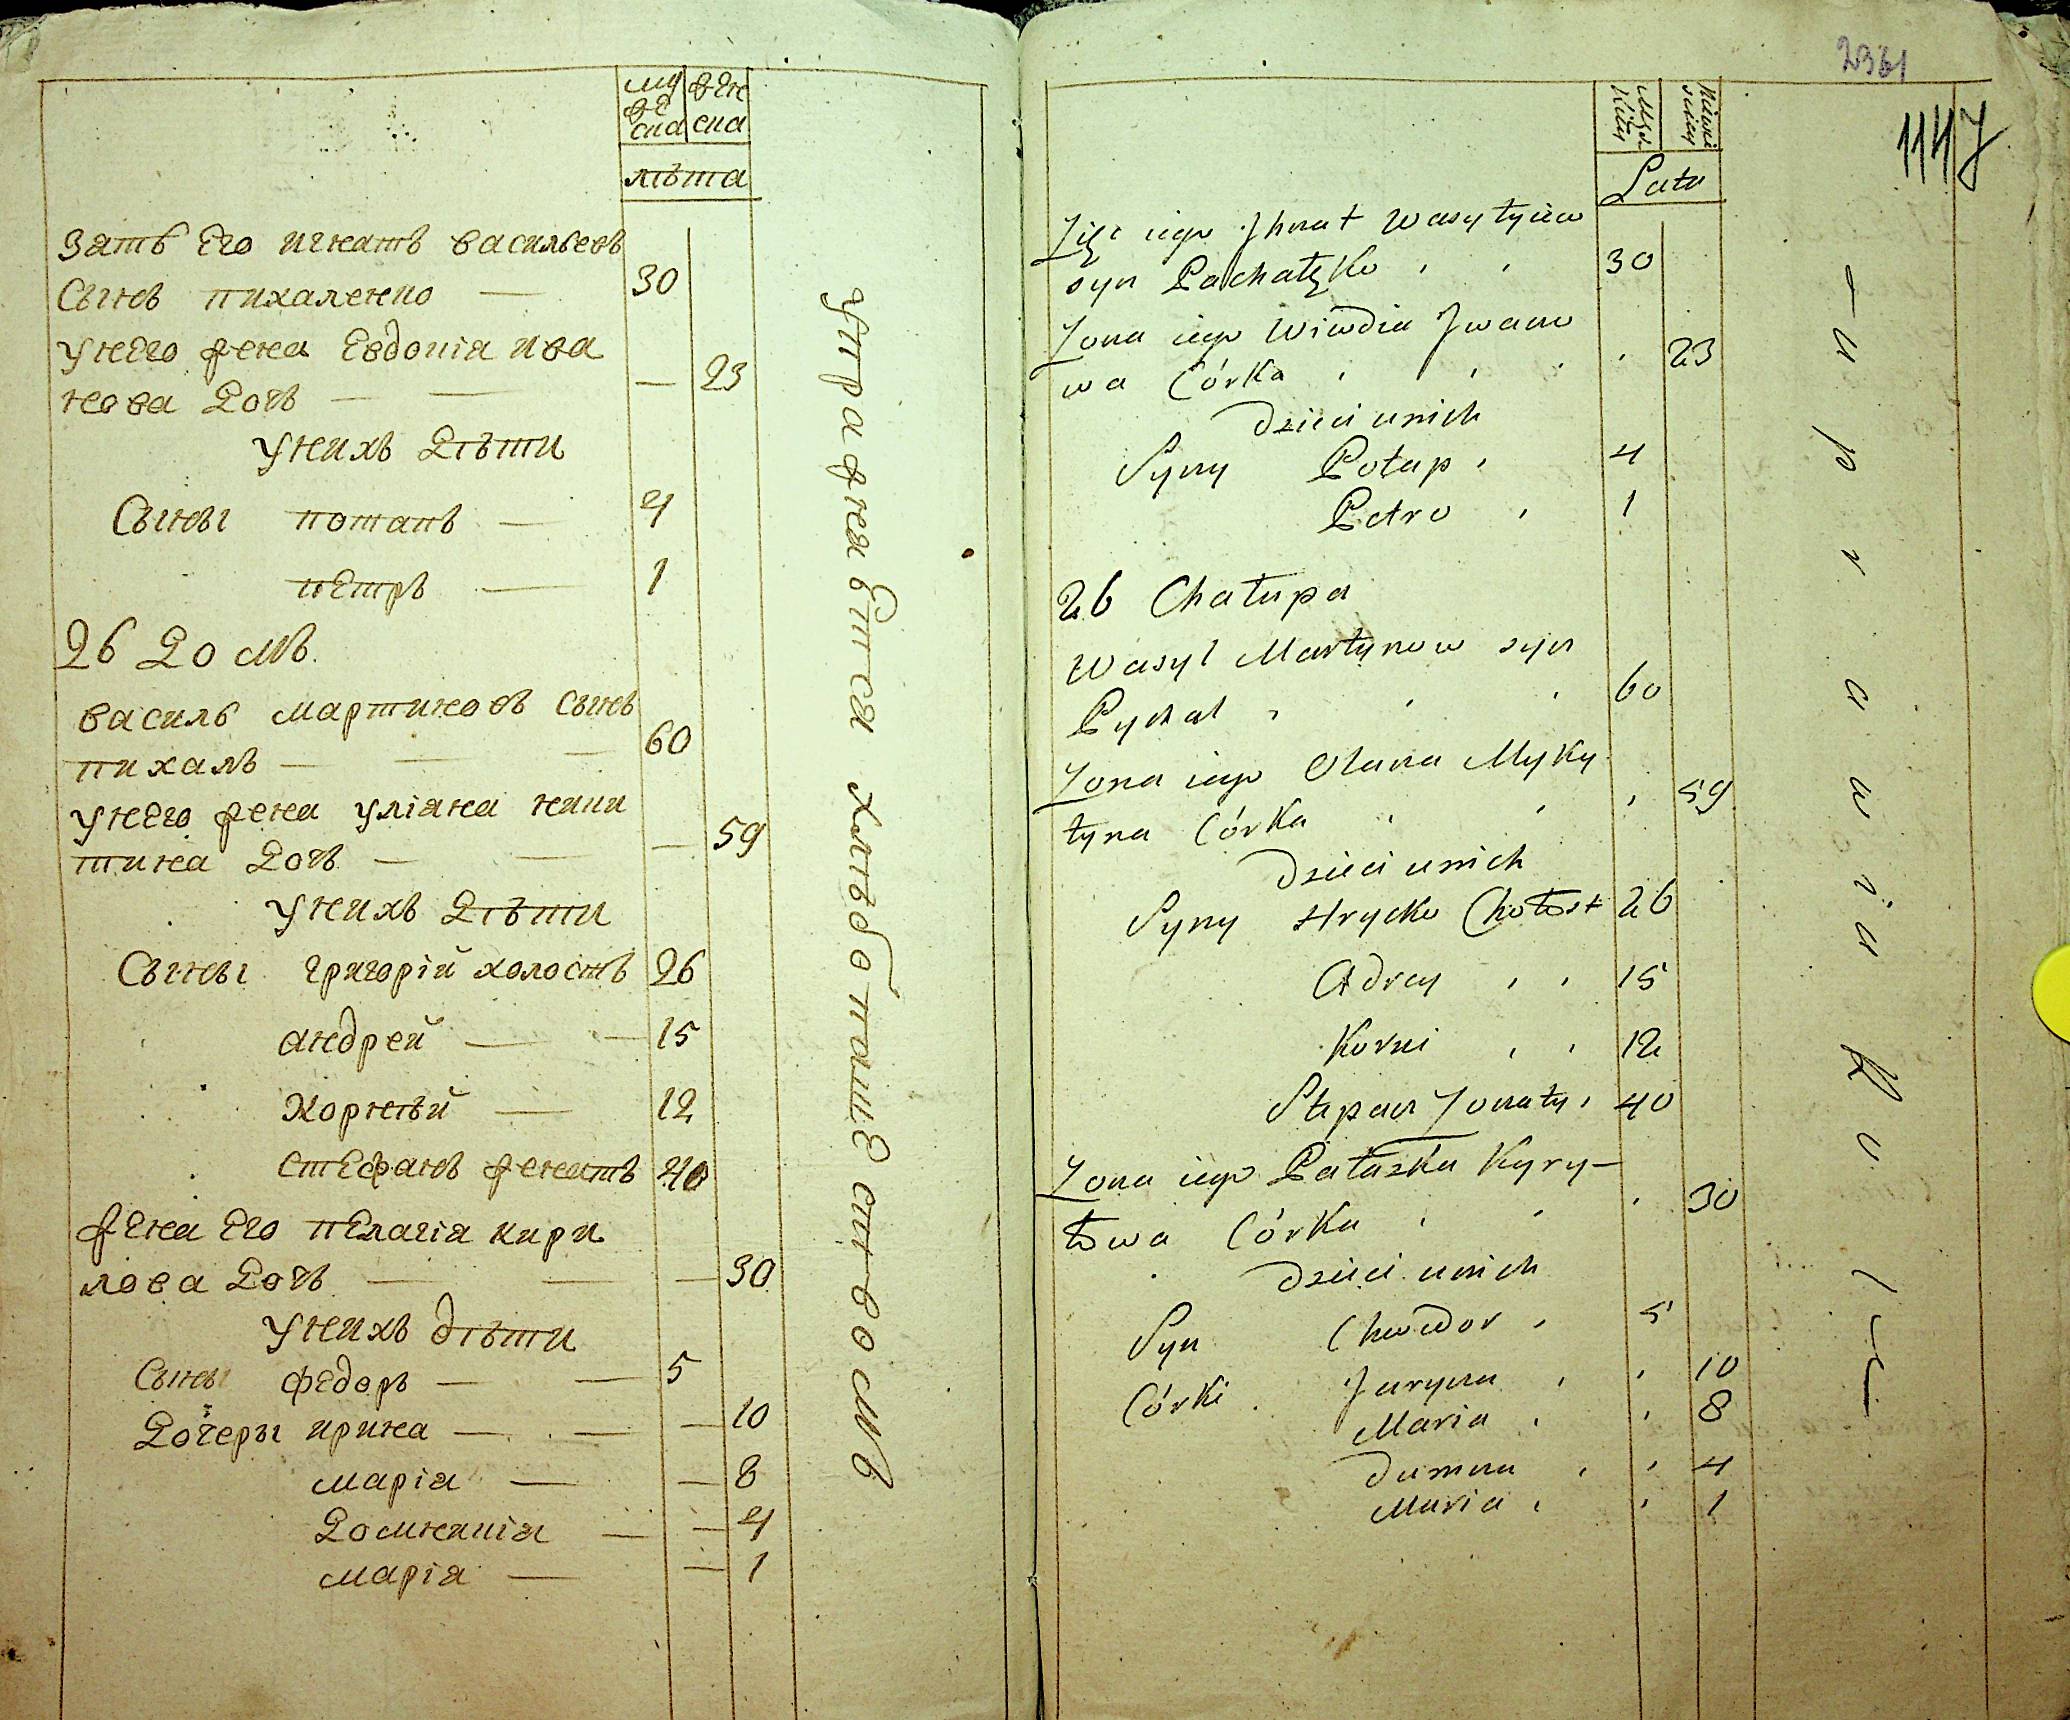 муже
ска
жен
ска
лѣта
зять Его игнатъ васильевъ
Сынъ пихаленко — 30
унего жена Евдокія ива
нова Дочь — — — 23
унихъ Дѣти
Сыны потапъ — 4
пЕтръ — 1
26 Домъ.
василь мартиновъ Сынъ
пихаль — — — 60
унего жена уліяна ники
тина Дочь — — — 59
унихъ Дѣти
Сыны григорій холостъ 26
андрей — — 15
Корнѣй — 12
стЕфанъ женатъ 40
жена Его пЕлагія кири
лова Дочь — — — 30
унихъ дѣти
Сыны фЕдоръ — — 5
Дочеры ирина — — — 10
марія — — 8
Домникія — — 4
марія — — 1
упражняЕтся хлѣбопашЕствомъ
2361
1147
Męz
Kiey
Lata
Zięć iego Ihnat Wasylyiów
syn Pachałzko 30
Zona iego Wiwdia Iwano
wa Córka 23
Dzieci unich
Syny Potap 4
Petro 1
26 Chałupa
Wasyl Martynow syn
Pychal 60
Zona iego Olana Myky
tyna Córka 59
Dzieci unich
Syny Hrycko Chołost 26
Adrey 15
Korni 12
Stepan Zonaty 40
Zona iego Pałazka Kyry-
łowa Córka 30
Dzieci unich
Syn Chwedor 5
Córki Jaryna 10
Maria 8
Dumna 4
Maria 1